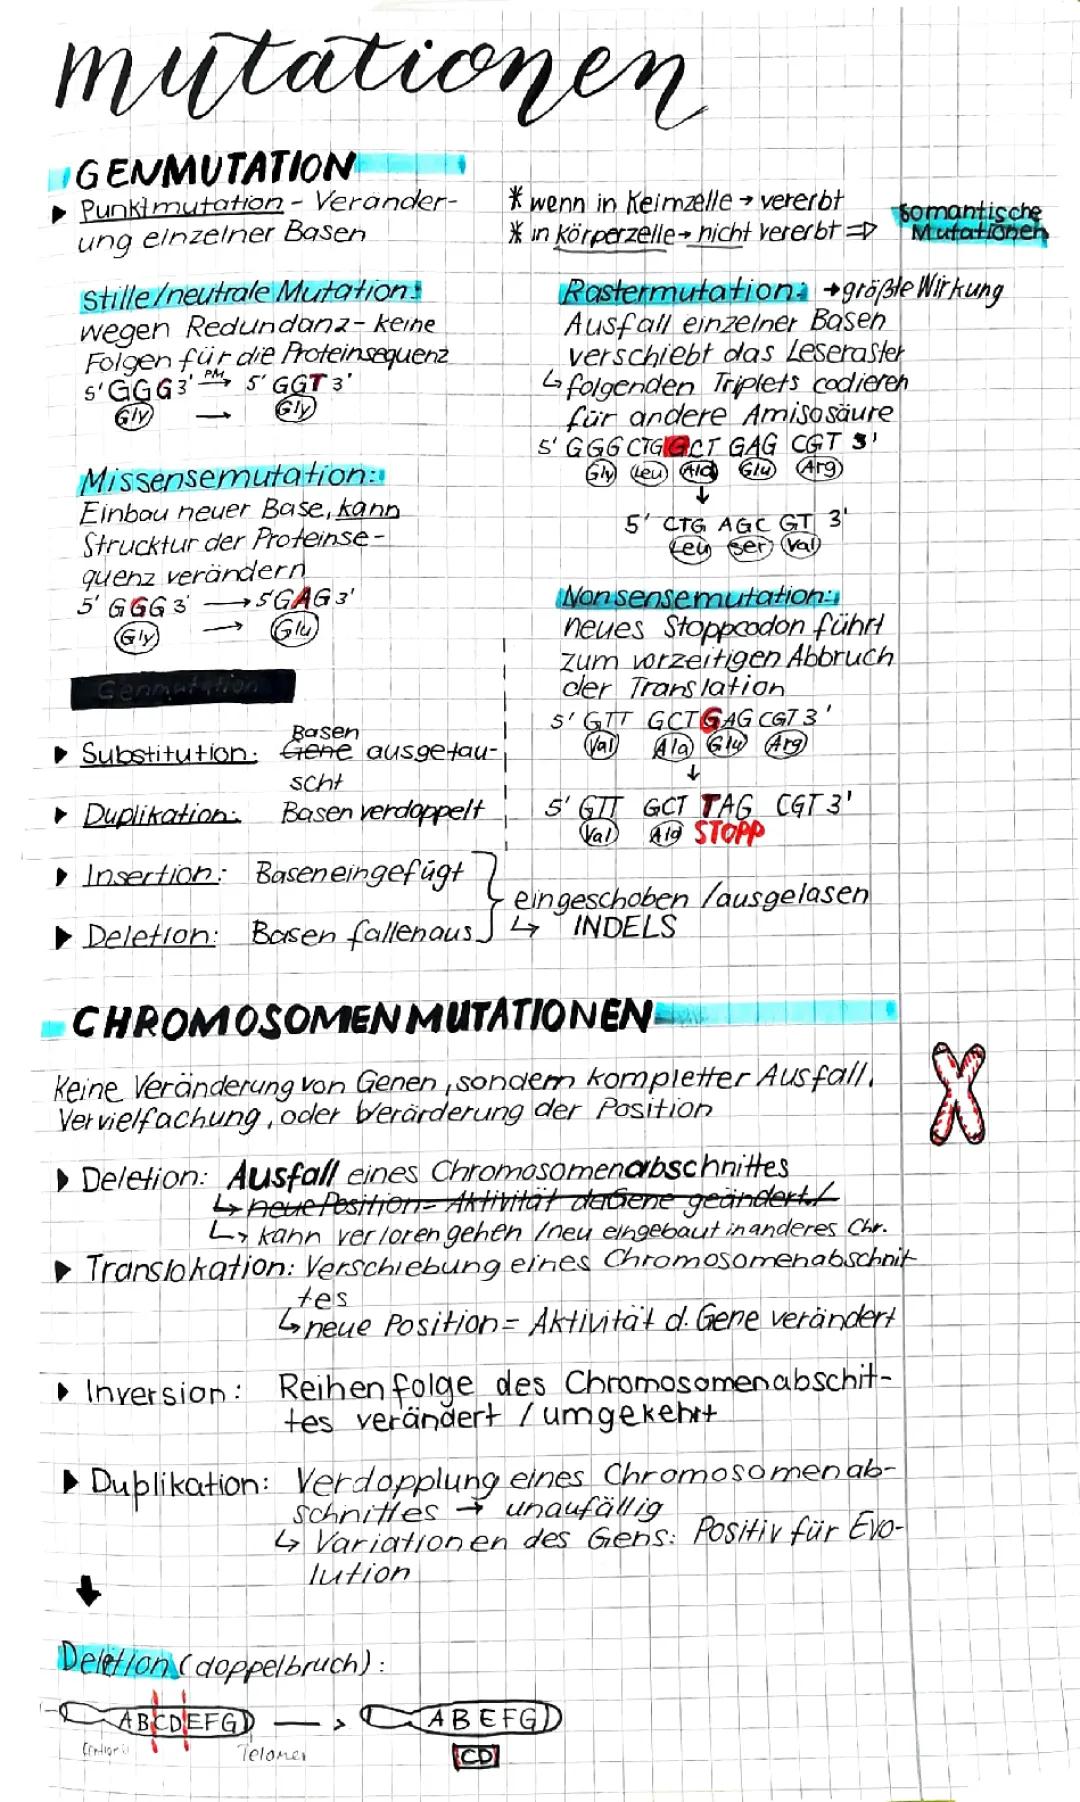 mutationen
GENMUTATION
▶ Punktmutation - Veränder-
ung einzelner Basen
* wenn in Keimzelle → vererbt
* in körperzelle → nicht vererbt ⇒
somantische
Mutationen
Stille/neutrale Mutation:
wegen Redundanz - keine
Folgen für die Proteinsequenz
5' GGG 3' PM→ 5' GGT 3'
Gly → Gly
Missensemutation:
Einbau neuer Base, kann
Strucktur der Proteinse-
quenz verändern
5' GGG 3' → 5' GAG 3'
Gly → Glu
Rastermutation: → größte Wirkung
Ausfall einzelner Basen
verschiebt das Leseraster
↳ folgenden Triplets codieren
für andere Amisosäure
5' GGG CTG GCT GAG CGT 3'
Gly Leu Ala Glu Arg
↓
5' CTG AGC GT 3'
Leu Ser Val
Nonsensemutation:
neues Stoppcodon führt
zum vorzeitigen Abbruch
der Translation
5' GTT GCT GAG CGT 3'
Val Ala Glu Arg
↓
5' GTT GCT TAG CGT 3'
Val Ala STOPP
Genmutation
Basen
▶ Substitution: Gene ausgetau-
scht
▶ Duplikation: Basen verdoppelt
▶ Insertion: Basen eingefügt
▶ Deletion: Basen fallen aus
eingeschoben / ausgelasen
↳ INDELS
CHROMOSOMENMUTATIONEN
Keine Veränderung von Genen, sondern kompletter Ausfall,
Vervielfachung, oder Verärderung der Position
▶ Deletion: Ausfall eines Chromosomenabschnittes
↳ neue Position = Aktivität da Gene geändert /
↳ kann verloren gehen / neu eingebaut in anderes Chr.
▶ Translokation: Verschiebung eines Chromosomenabschnit
tes
↳ neue Position = Aktivität d. Gene verändert
▶ Inversion: Reihenfolge des Chromosomenabschit-
tes verändert / umgekehrt
▶ Duplikation: Verdopplung eines Chromosomenab-
schnittes → unaufällig
↳ Variationen des Gens: Positiv für Evo-
lution
↓
Deletion (doppelbruch):
ABCDEFG → ABEFG
Telomer
CD